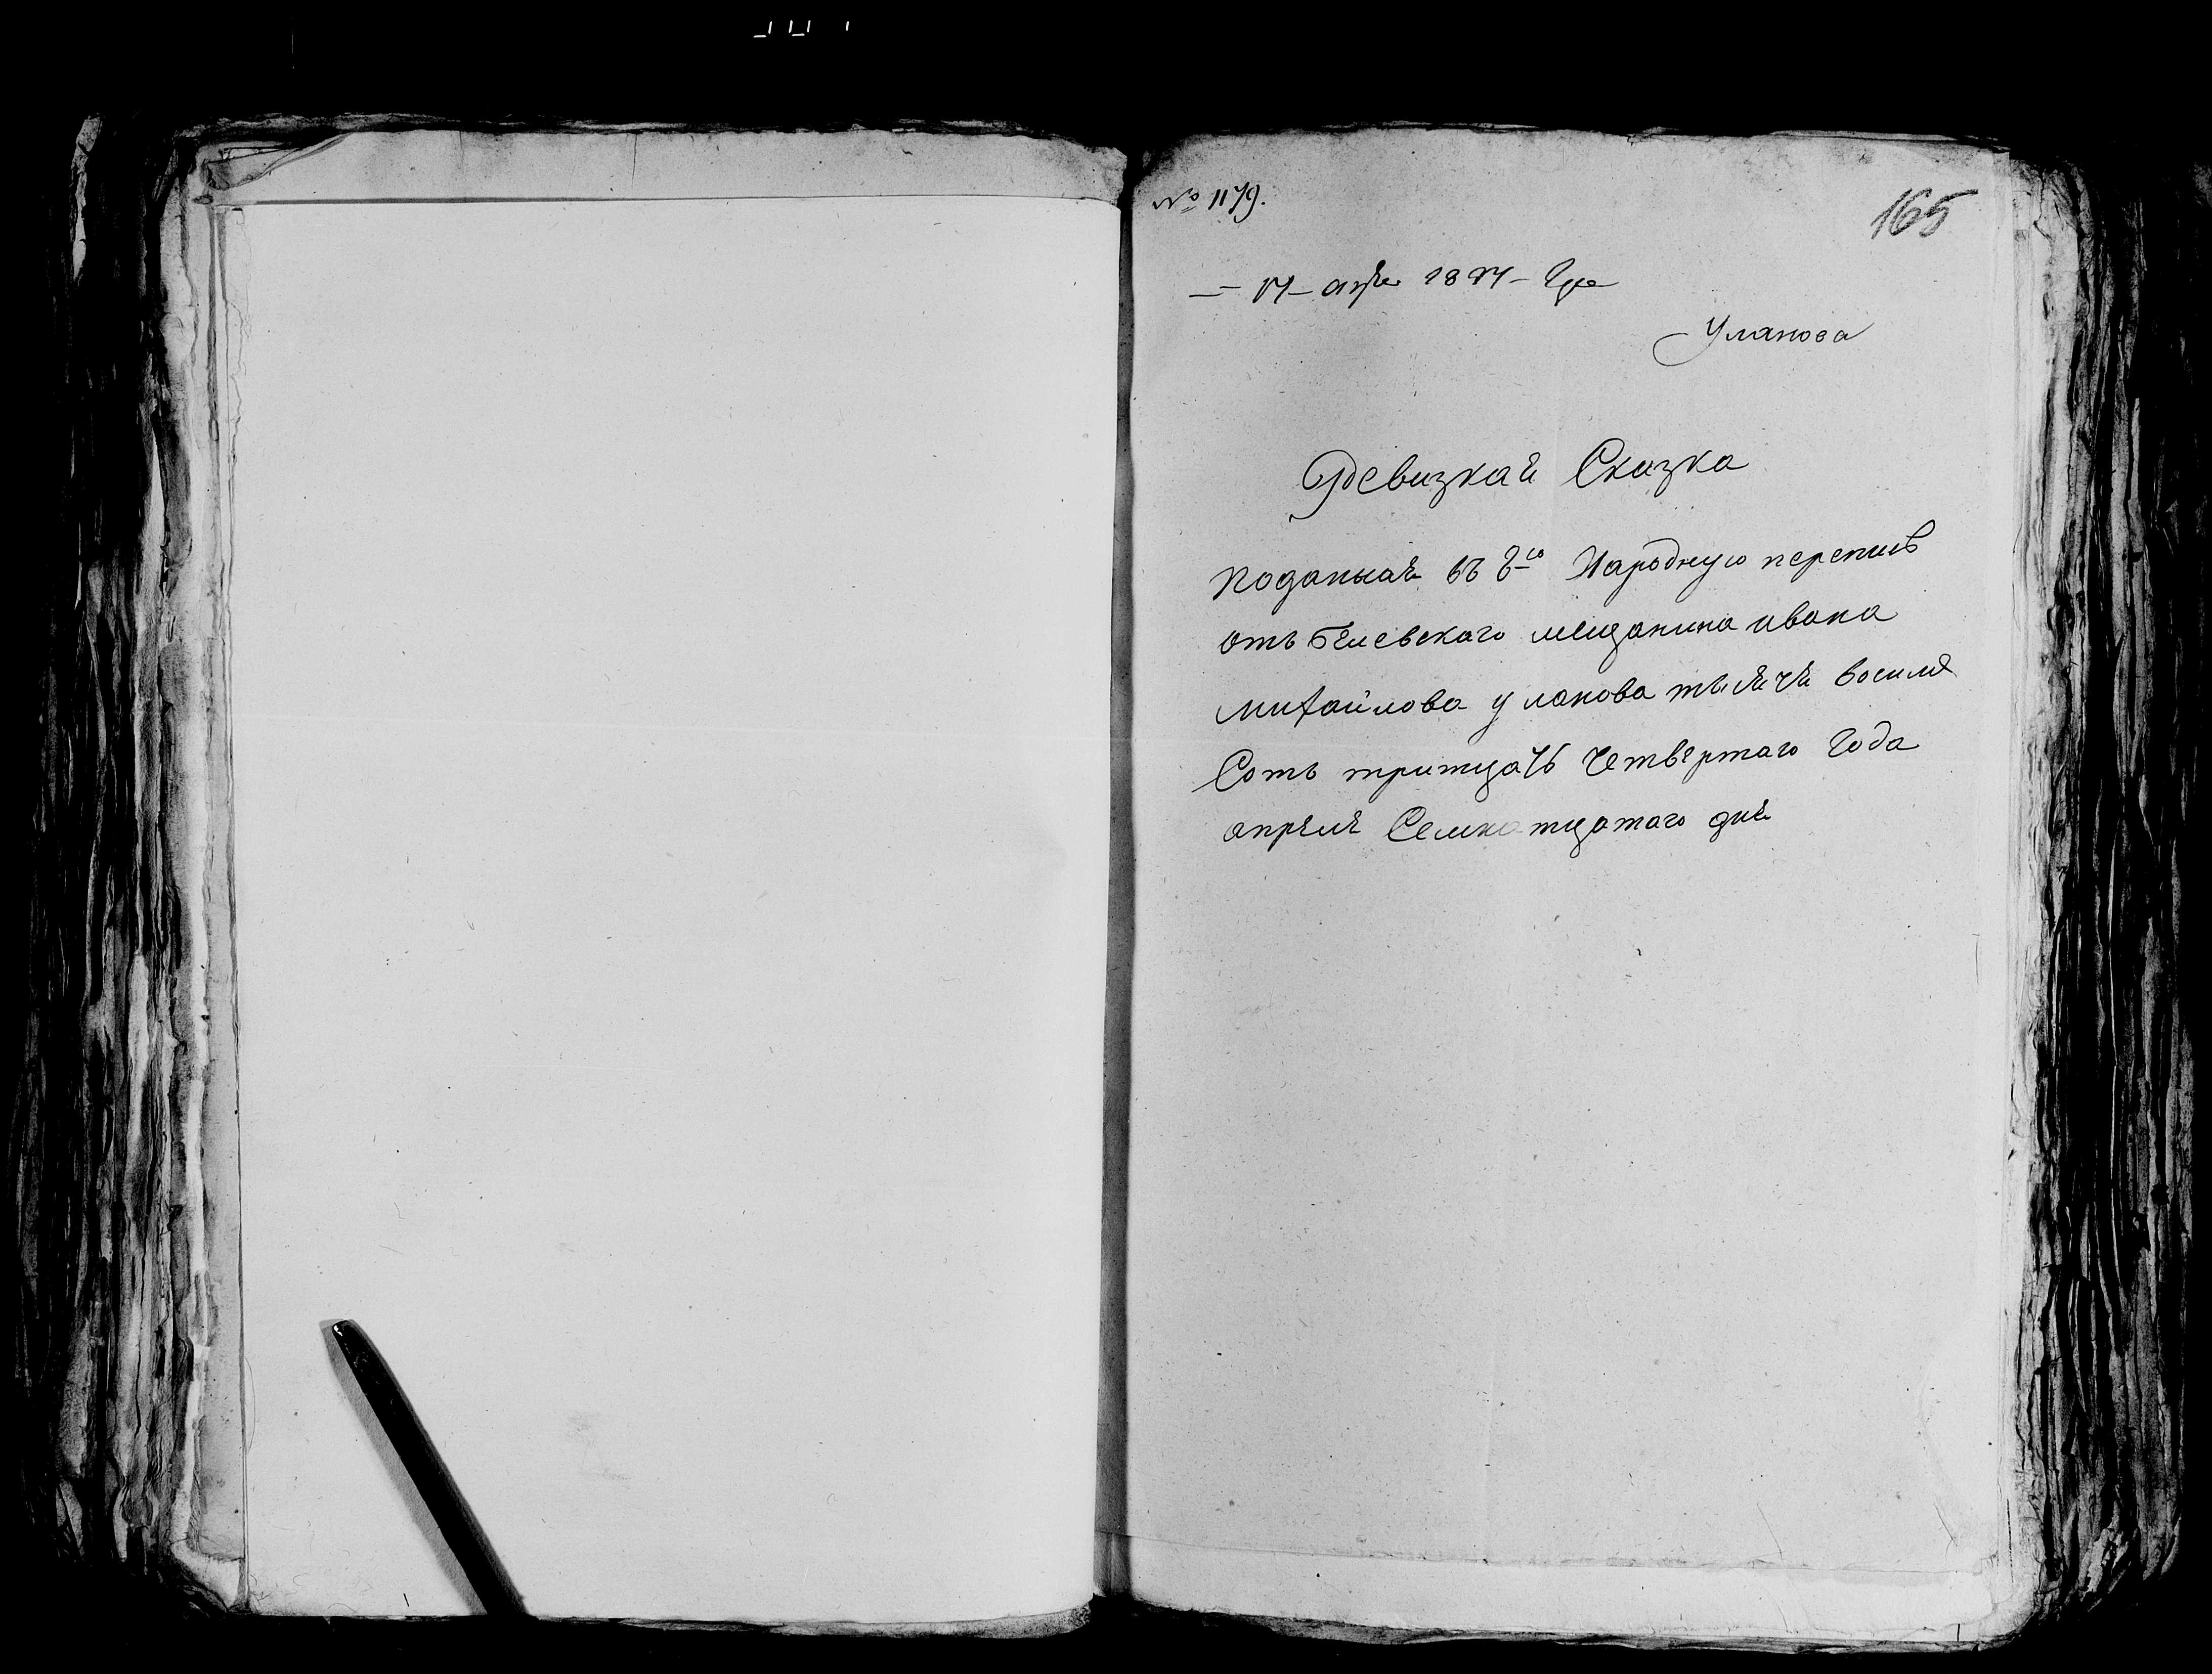 № 1179.
165
17 апре 1834 Года
Уланова
Ревизкая Сказка
поданная въ 8ю Народную перепись
отъ Белевского мещанина ивана
михайлова уланова тысяча восемь
Сотъ тритцать четвертаго Года
апреля Семнатцатаго дня